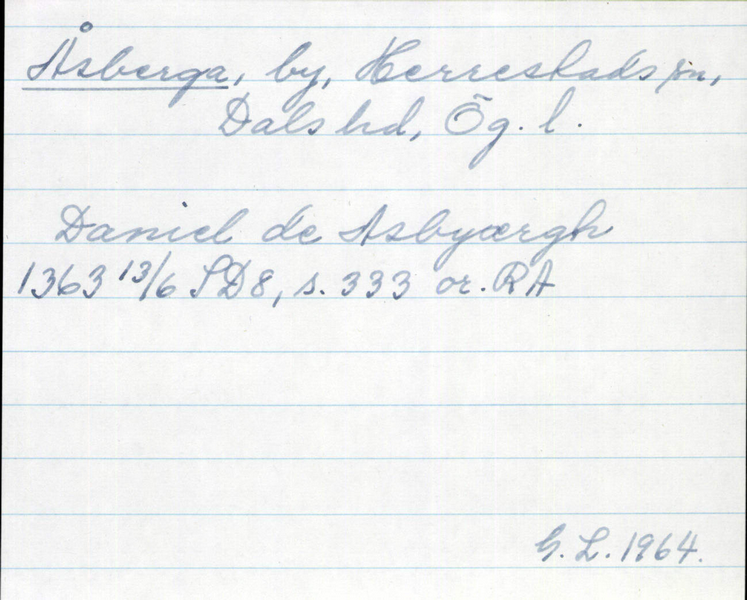 Åsberga, by, Herrestads sn,
Dals hd, Ög. l.
Daniel de Asbyærgh
1363 13/6 SD8, s. 333 or. RA
G. L. 1964.